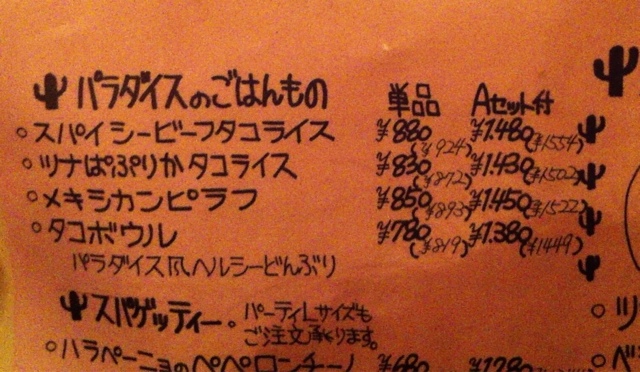 パラダイスのごはんもの 単品 Aセット付
○スパイシービーフタコライス ¥880(¥924) ¥1.480(¥1554)
○ツナぱぷりかタコライス ¥830(¥872) ¥1.430(¥1502)
○メキシカンピラフ ¥850(¥893) ¥1.450(¥1522)
○タコボウル ¥780(¥819) ¥1.380(¥1449)
パラダイス風ヘルシーどんぶり
スパゲッティー。 パーティLサイズも
ご注文承ります。
○ハラペーニョのペペロンチーノ ¥680 ¥1280
○ツ